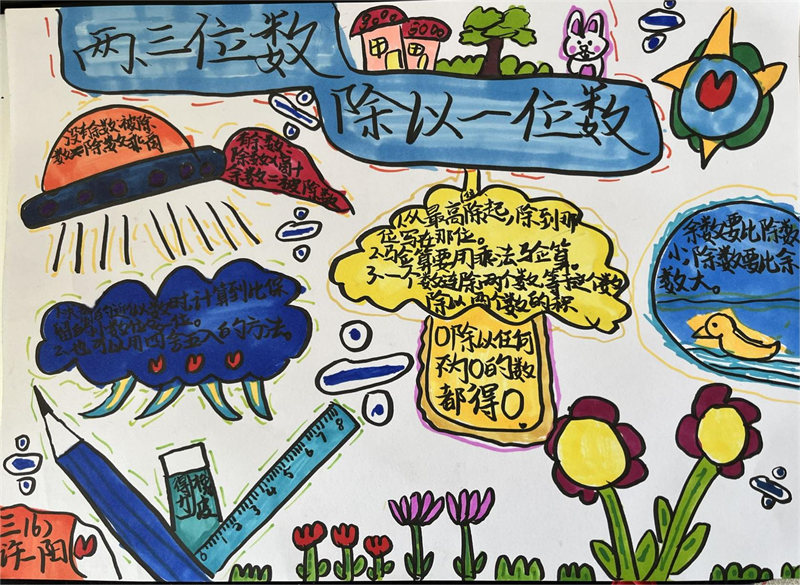 两、三位数
除以一位数
没有余数:被除
数=除数×商
有余数:
除数×商+
余数=被除数
1.从最高除起,除到那
位写在那位。
2.验算要用乘法验算。
3.一个数连除两个数,等于这个数
除以两个数的积
0除以任何
不为0的数
都得0。
余数要比除数
小,除数要比余
数大。
时,计算到比保
留的小数位多一位。
2.也可以用四舍五入的方法。
0 1 2 3 4 5 6 7 8
三(6)
许阳